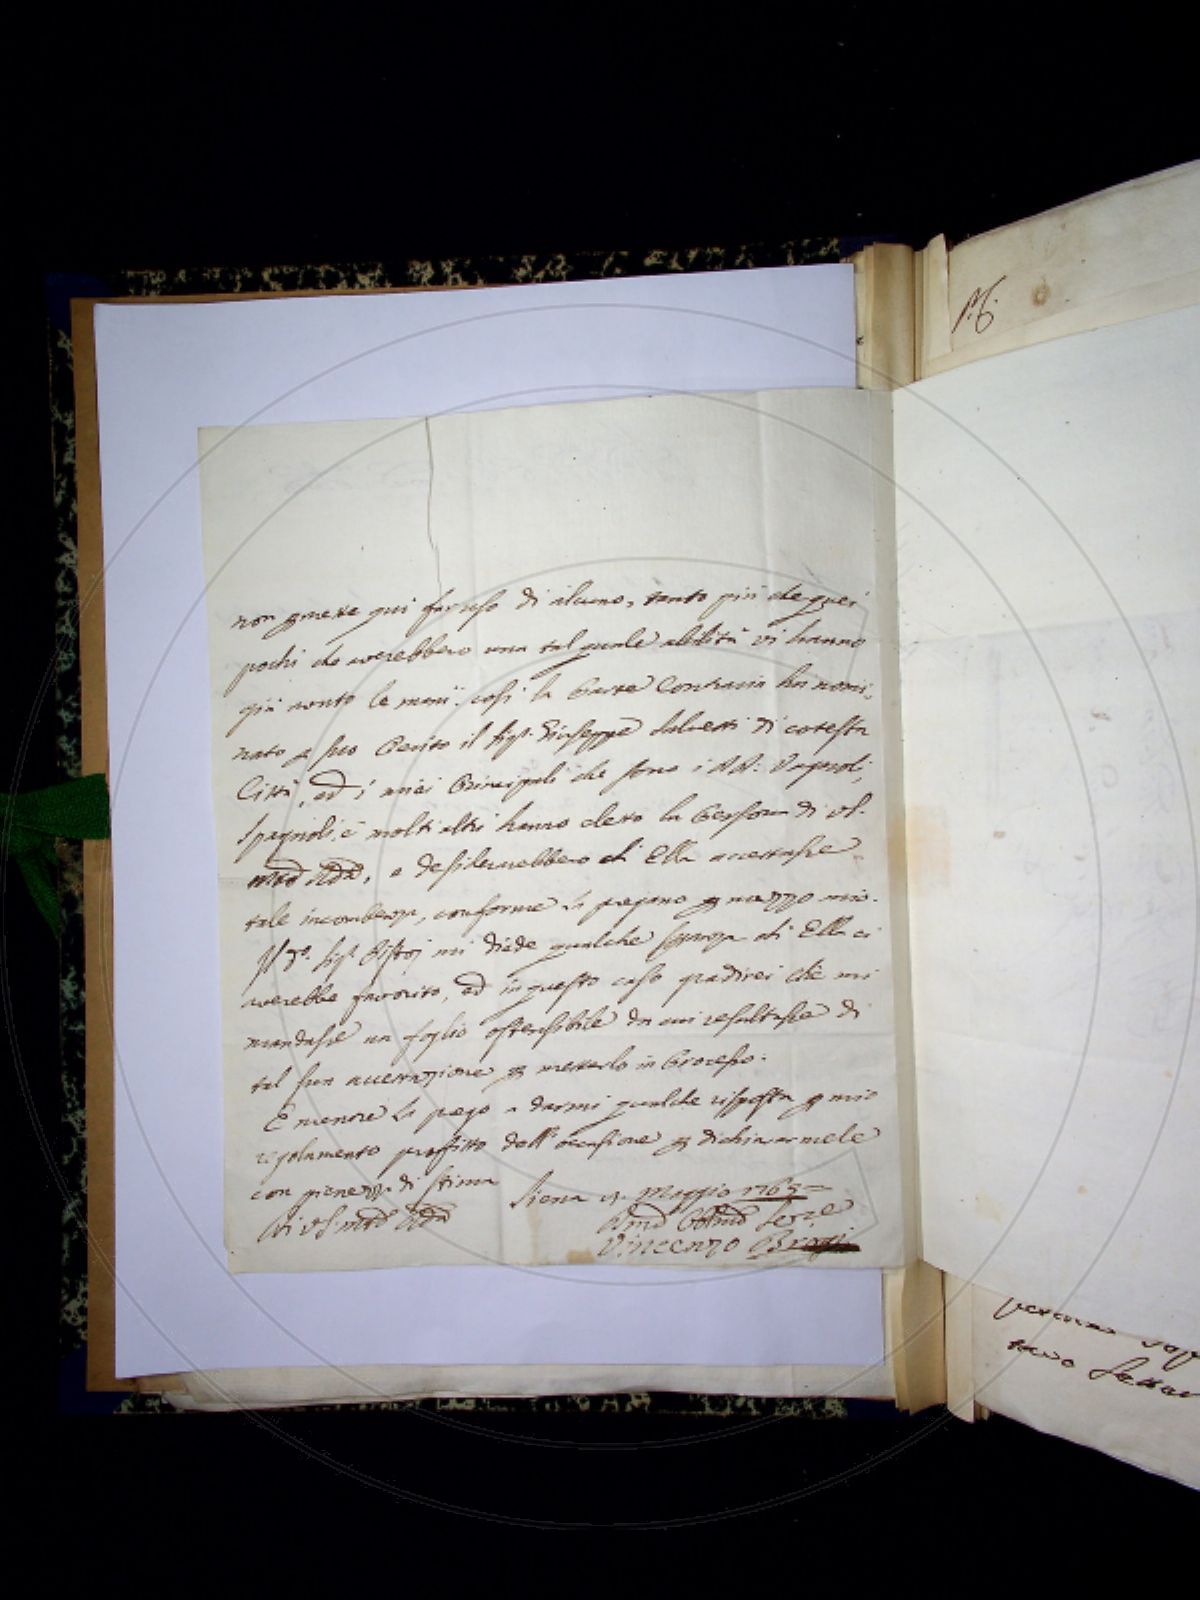 non permette qui far uso di alcuno, tanto più che quei
pochi che averebbero una tal quale abilità vi hanno
già avuto le mani. così la Parte Contraria ha nomi-
nato p suo Perito il Sigr. Giuseppe Salvetti di cotesta
Città, ed i miei Principali che sono i RR:
Spagnoli, e molti altri hanno eletto la Persona di VS.
e desidererebbero ch Ella accettasse
tale incombenza, conforme la pregano p mezzo mio.
Il do. Sigr. Pistoj mi diede qualche speranza ch Ella ci
averebbe favorito, ed in questo caso gradirei che mi
mandasse un foglio ostensibile da cui resultasse di
tal sua accettazione p metterlo in Processo.
E mentre La prego a darmi qualche risposta p mio
regolamento profitto dell' occasione p dichiararmele
con pienezza di stima
Di VS.
Siena Maggio 1765
Vincenzo Brogi